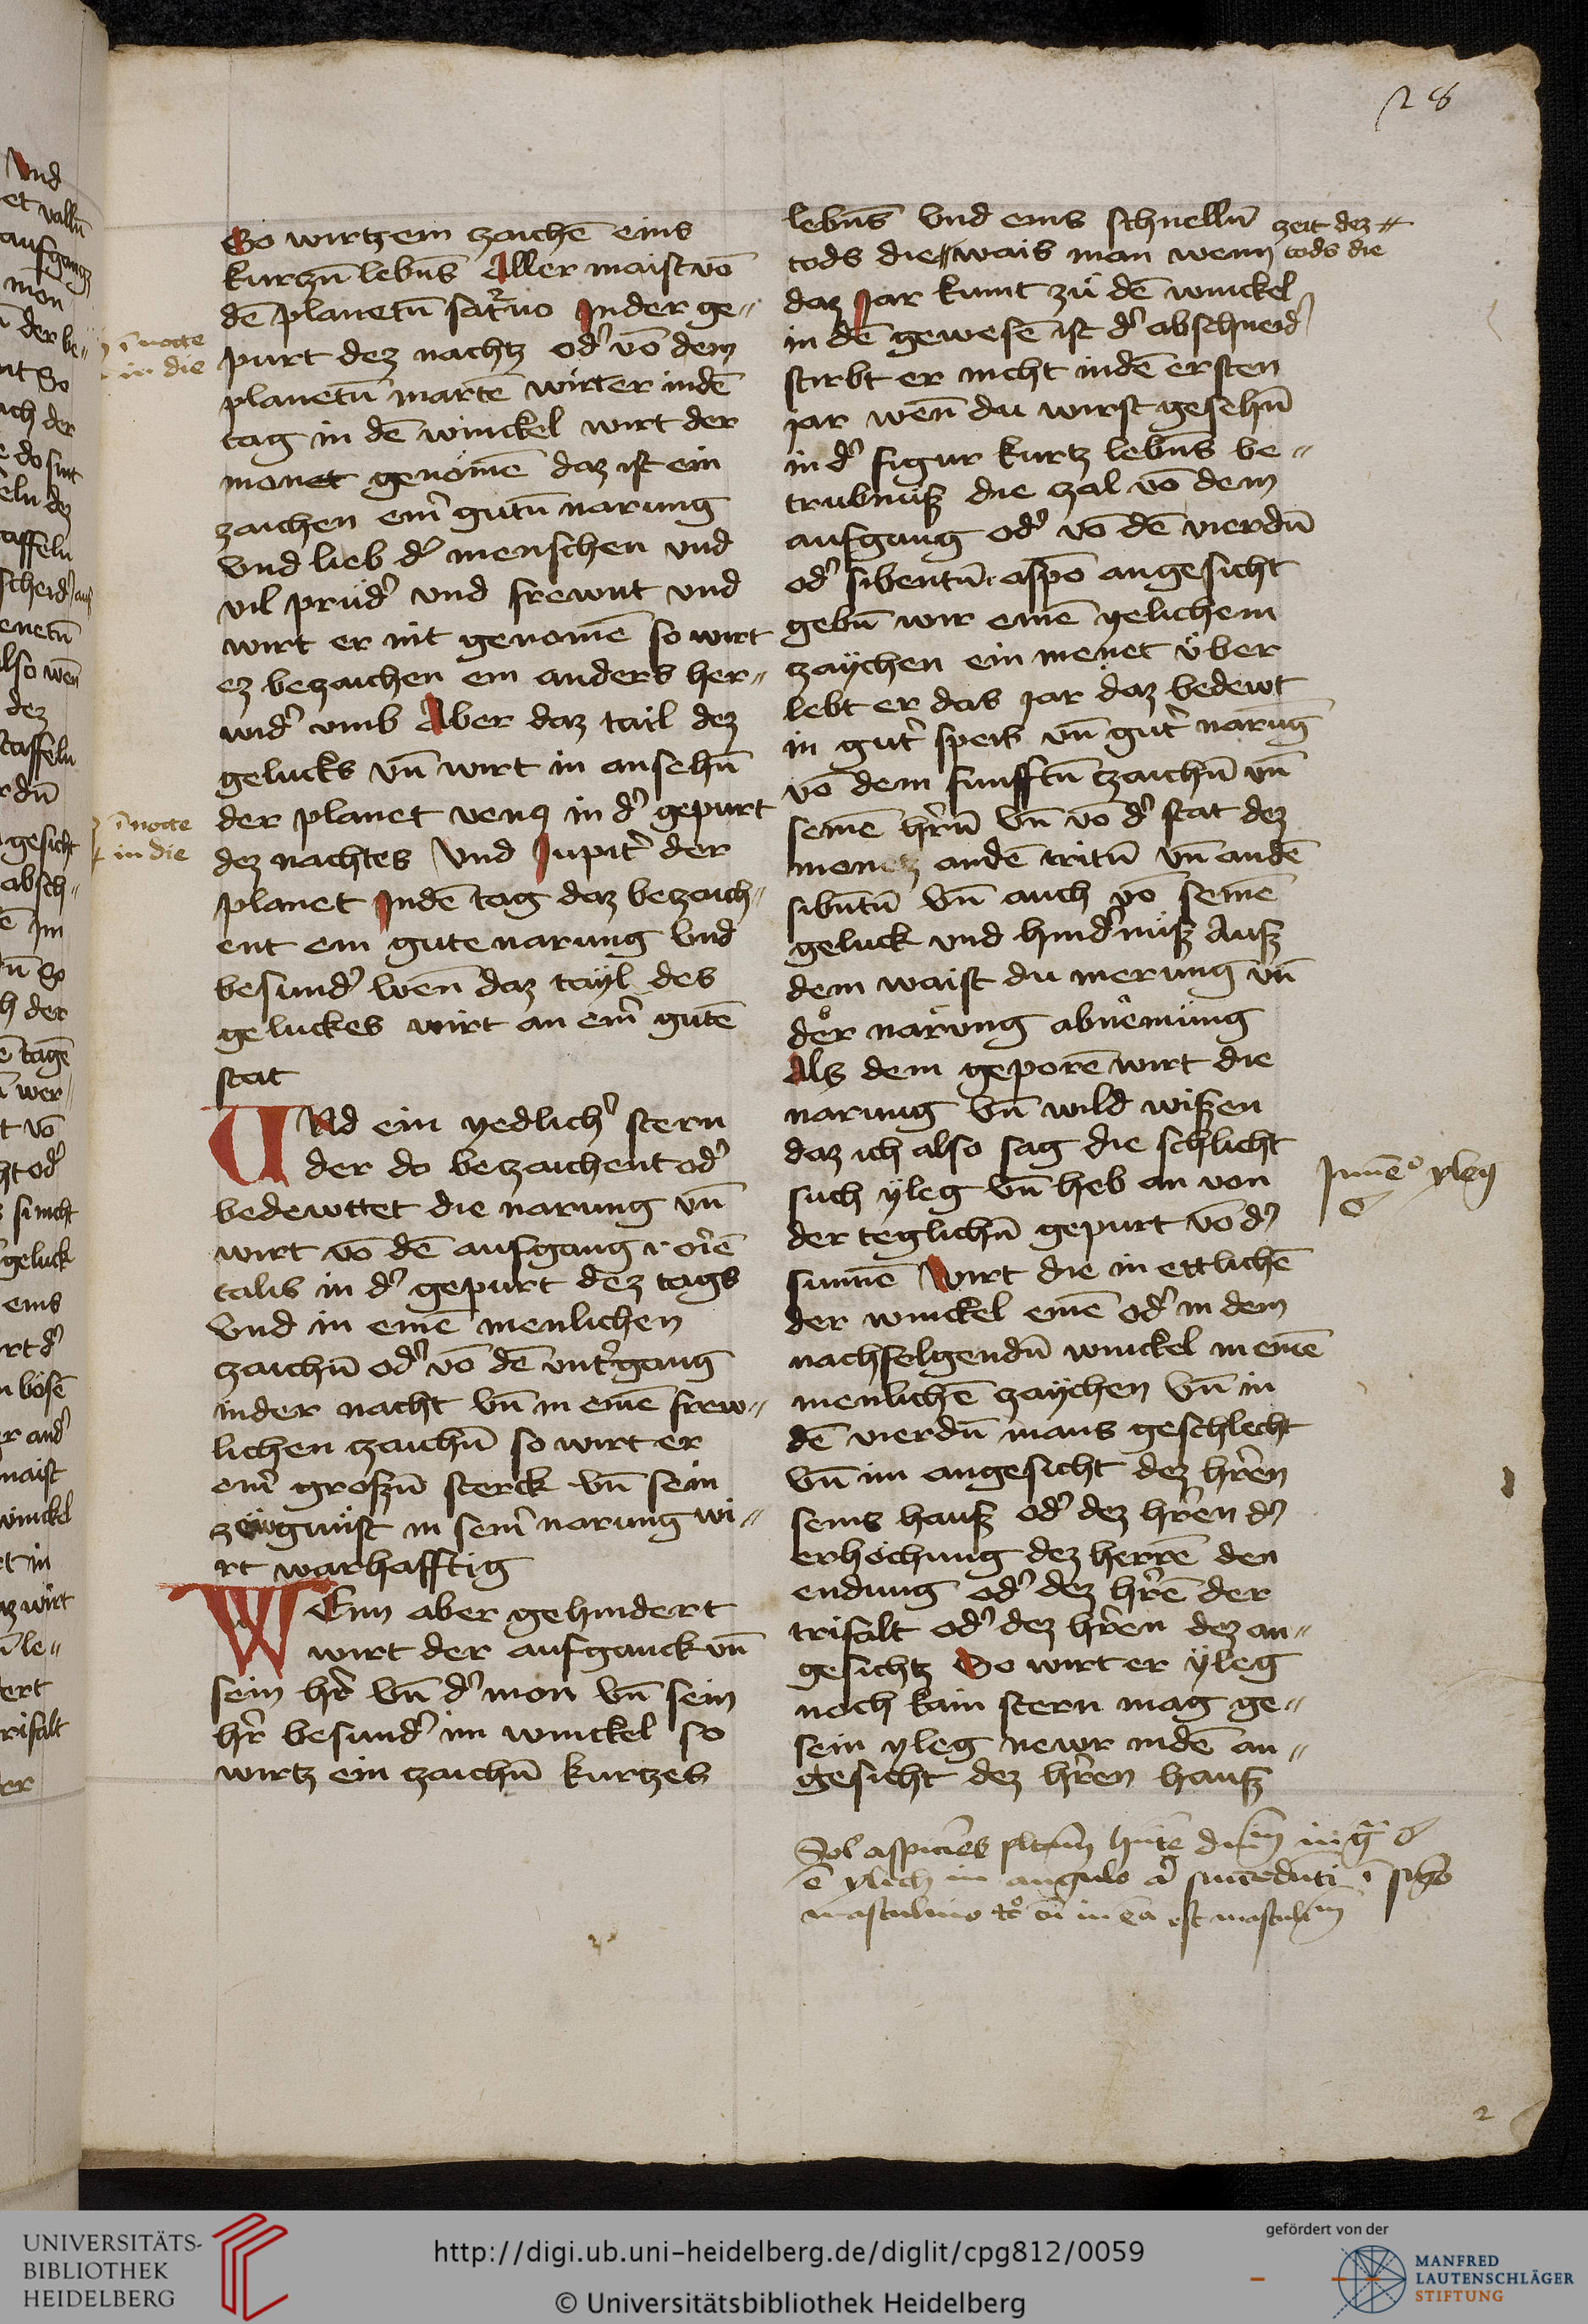 28
So wirtz ein zaichē eins
kurczn̄ lebns̄ Aller maist vō
dē planetn̄ sat̓no In der ge„
purt dez nachtz od̓ vō dem
planetn̄ martē wirt er in dē
tag in dē winckel wirt der
monet genömē daz ist ein
zaichen eim̓ gutn̄ narung
Vnd lieb d̓ menschen vnd
vil prüd̓ vnd frewnt vnd
wirt er nit genomē so wirt
ez beczaichen ein anders her„
wid̓ vmb Aber daz tail dez
gelucks vn̄ wirt in ansehn̄
der planet venꝰ in d̓ gepurt
dez nachtes Vnd Jupit̓ der
planet In dē tag daz beczaich„
ent ein gute narung Vnd
besund̓ wen̄ daz tayl des
geluckes wirt an eim̓ gutē
stat
VNd ein yedlich̓ stern
der do beczaichent od̓
bedewttet die narung vn̄
wirt vō dē aufgang i· oriē
talis in d̓ gepurt dez tags
Vnd in einē menlichen
zaichn̄ od̓ vō dē vnt̓gang
in der nacht vn̄ in einē frew„
lichen zaichn̄ so wirt er
eim̓ groszn̄ sterck vn̄ sein
zewgnüst in seim̓ narung wi„
rt warhafftig
WEnn aber gehindert
wirt der aufganck vn̄
sein hr̓ vn̄ d̓ mon vn̄ sein
hr̓ besund̓ im winckel so
wirtz ein zaichn̄ kurtzes
lebns̄ Vnd eins schnelln̄
zeit dez
tods die wais man wenn
tods die
daz Jar kumt zü dē winckel
in dē gewesē ist d̓ abschneid̓
stirbt er nicht in dē ersten
jar wen̄ du wirst gesehn̄
in d̓ figur kurtz lebns̄ be„
trubnüsz die zal vō dem
aufgang od̓ vō dē vierdn̄
od̓ sibentn̄ aspō angesicht
gebn̄ wir einē yelichem
zaychen ein monet über
lebt er das jar daz bedewt
in gut̓ speis vn̄ gut̓ narūg
vō dem funfftn̄ zaichn̄ vn̄
seinē hr̓n̄ vn̄ vō d̓ stat dez
monez an dē tritn̄ vn̄ an dē
sibntn̄ vn̄ auch vō seinē
geluck vnd hind̓nüsz Ausz
dem waist du merung vn̄
der narung abnemung
Als dem geporē wirt die
narung vn̄ wild wiszen
daz ich also sag die schlicht
such yleg vn̄ heb an von
der teglichn̄ gepurt vō d̓
sunnē Wirt die in ettlichē
der winckel einē od̓ in dem
nachfolgendn̄ winckel in einē
menlichē zaychen vn̄ in
dē vierdn̄ mans geschlecht
vn̄ im angesicht dez hr̓en
seins hausz od̓ dez hr̓en d̓
erhöchung dez herrē den
endung od̓ dez hr̓ē der
trifalt od̓ dez hr̓en dez an„
gesichtz So wirt er yleg
noch kain stern mag ge„
sein yleg newr in dē an„
gesicht dez hr̓en hausz
ī nocte
in die
ī nocte
in die
yleg
Sol aspiciēs
ē ylech in angulo
masculino est masculin
2
UNIVERSITÄTS-
BIBLIOTHEK
HEIDELBERG
http://digi.ub.uni-heidelberg.de/diglit/cpg812/0059
© Universitätsbibliothek Heidelberg
gefördert von der
MANFRED
LAUTENSCHLÄGER
STIFTUNG